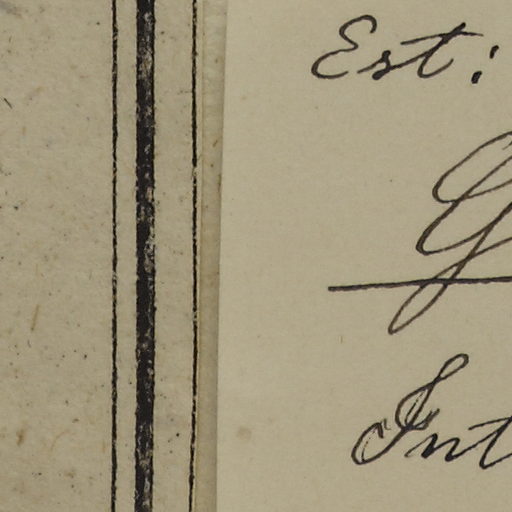 Est:
G
Int